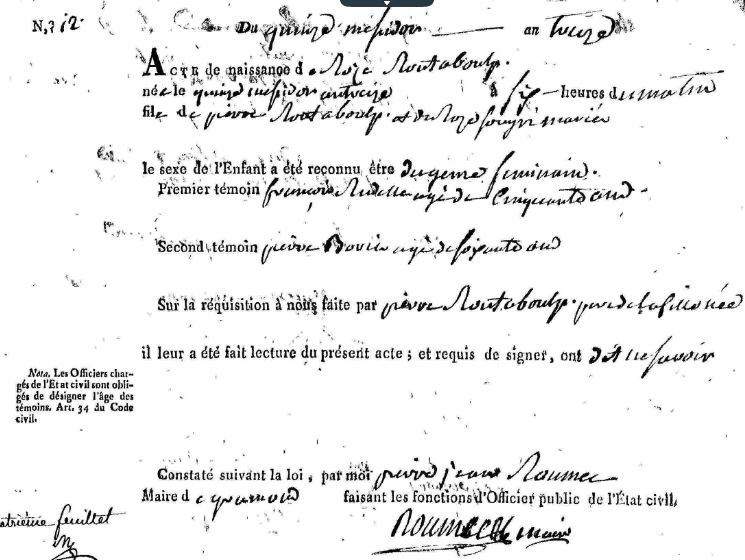 N.º 12. Du quinze messidor an treize
ACTE de naissance de Roze Routaboulp.
née le quinze messidor an treize à six heures du matin
fille de pierre Routaboulp. et de Roze mariés
le sexe de l'Enfant a été reconnu être du genre feminain.
Premier témoin françois agé de Cinquante ans.
Second témoin pierre agé de soixante ans
Sur la réquisition à nous faite par pierre Routaboulp. pere de la fille née
il leur a été fait lecture du présent acte ; et requis de signer, ont dit ne savoir
Nota. Les Officiers char-
gés de l'Etat civil sont obli-
gés de désigner l'âge des
témoins. Art. 34 du Code
civil.
Constaté suivant la loi, par moi pierre jean Roumec
Maire de faisant les fonctions d'Officier public de l'État civil,
atrieme feuillet
Roumec maire